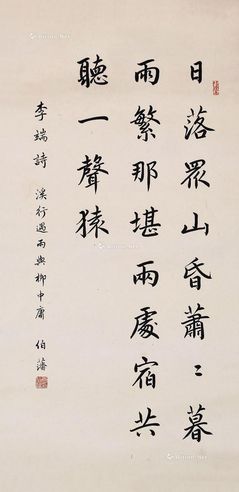 日落眾山昏蕭〻暮
雨繁那堪兩處宿共
聽一聲猿
李端詩 溪行遇雨與柳中庸 伯藩